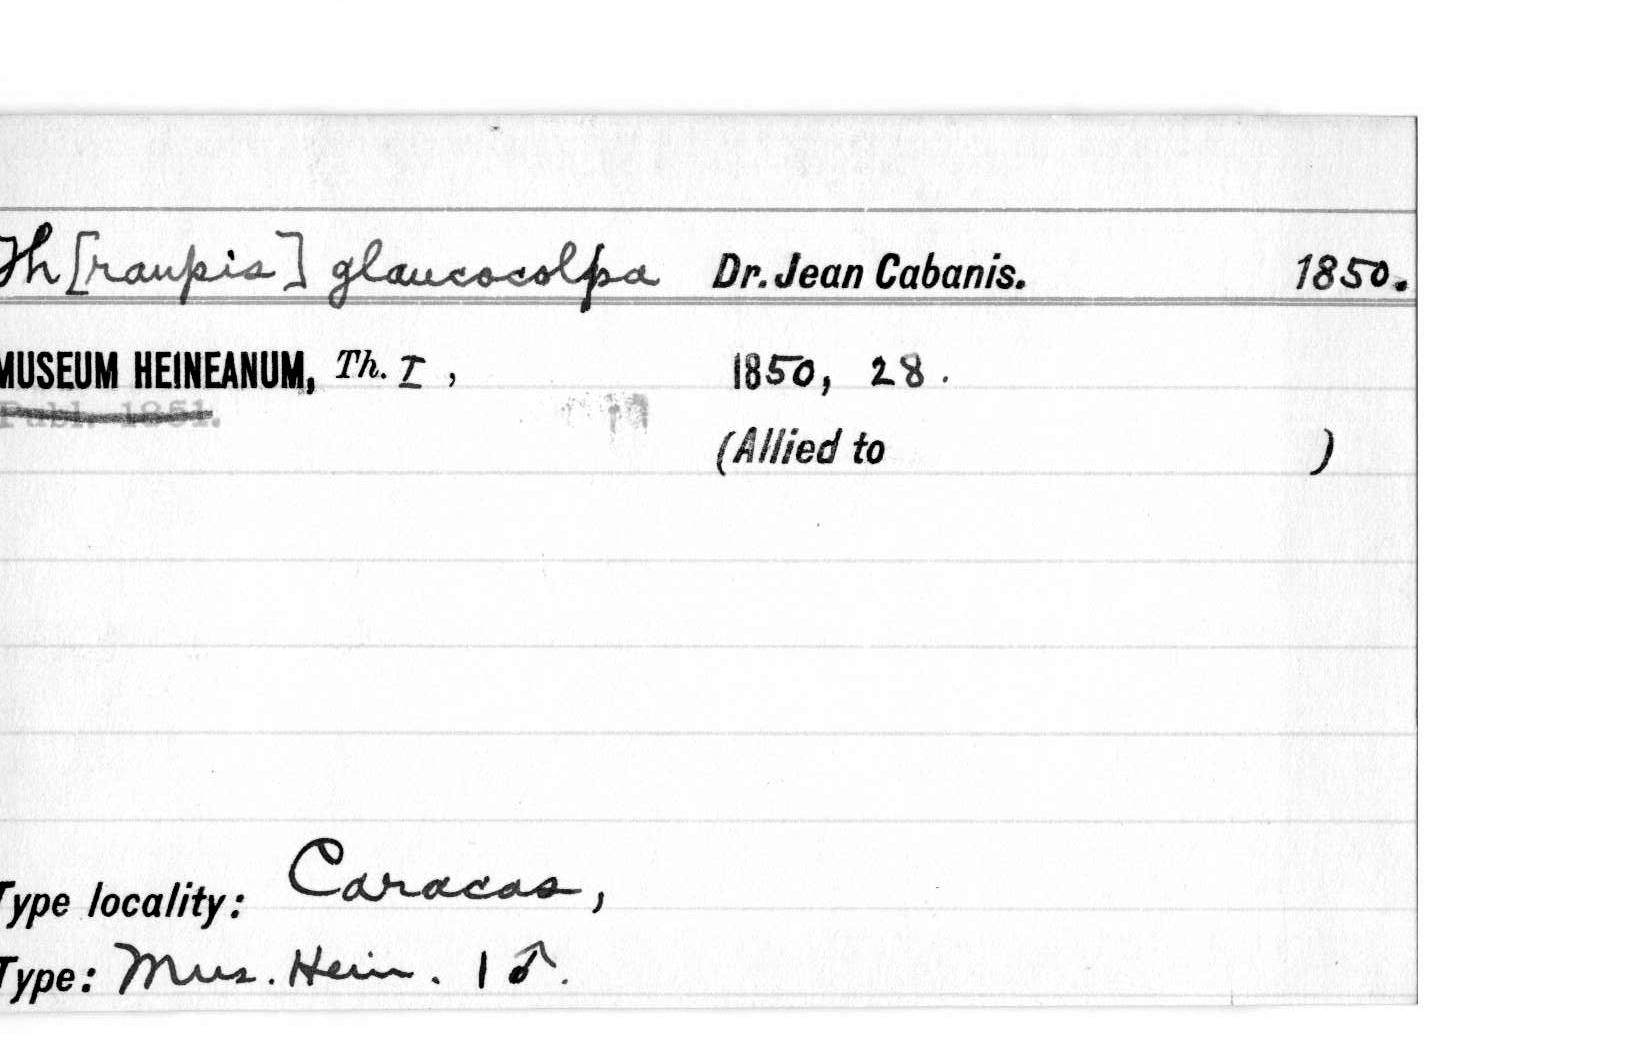 Th[raupis] glaucocolpa Dr. Jean Cabanis. 1850.
MUSEUM HEINEANUM, Th. I, 1850, 28.
Publ. 1851.
(Allied to )
Type locality: Caracas,
Type: Mus. Hein. 1 ♂.